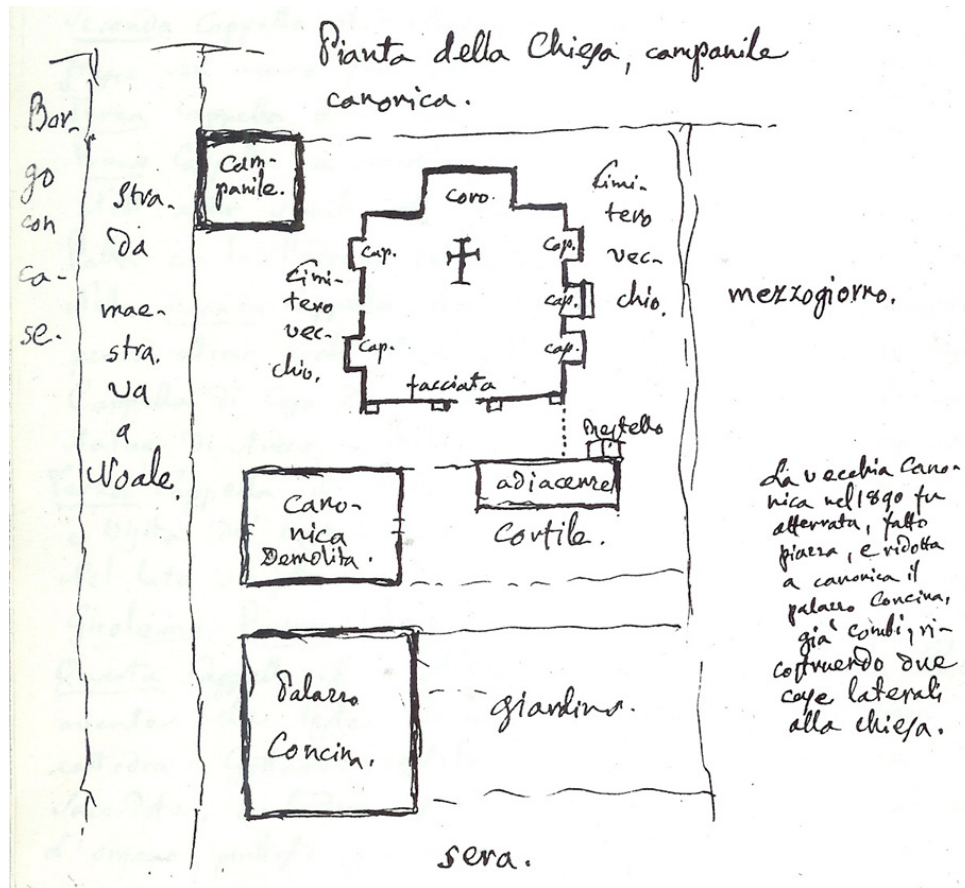 Pianta della Chiesa, campanile
canonica.
Bor-
go
con
ca-
se.
Stra-
da
mae-
stra.
va
a
Noale.
Cam-
panile.
coro.
Cap.
Cap.
Cap.
Cap.
Cap.
Cimi-
tero
vec-
chio.
Cimi-
tero
vec-
chio.
facciata
mezzogiorno.
adiacenze
Cortile.
Cano-
nica
Demolita.
La vecchia Cano-
nica nel 1890 fu
atterrata, fatto
piazza, e ridotta
a canonica il
palazzo Concina,
già Combi, ri-
costruendo due
case laterali
alla chiesa.
Palazzo
Concina.
giardino.
sera.